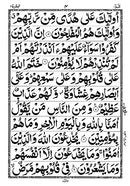 أُولَٰئِكَ عَلَىٰ هُدًى مِّن رَّبِّهِمْ
وَأُولَٰئِكَ هُمُ الْمُفْلِحُونَ إِنَّ الَّذِينَ
كَفَرُوا سَوَاءٌ عَلَيْهِمْ ءَأَنذَرْتَهُمْ أَمْ
لَمْ تُنذِرْهُمْ لَا يُؤْمِنُونَ خَتَمَ اللَّهُ
عَلَىٰ قُلُوبِهِمْ وَعَلَىٰ سَمْعِهِمْ وَعَلَىٰ
أَبْصَارِهِمْ غِشَاوَةٌ وَلَهُمْ عَذَابٌ
عَظِيمٌ وَمِنَ النَّاسِ مَن يَقُولُ
آمَنَّا بِاللَّهِ وَبِالْيَوْمِ الْآخِرِ وَمَا هُم
بِمُؤْمِنِينَ يُخَٰدِعُونَ اللَّهَ وَالَّذِينَ
آمَنُوا وَمَا يَخْدَعُونَ إِلَّا أَنفُسَهُمْ
وَمَا يَشْعُرُونَ فِي قُلُوبِهِم مَّرَضٌ